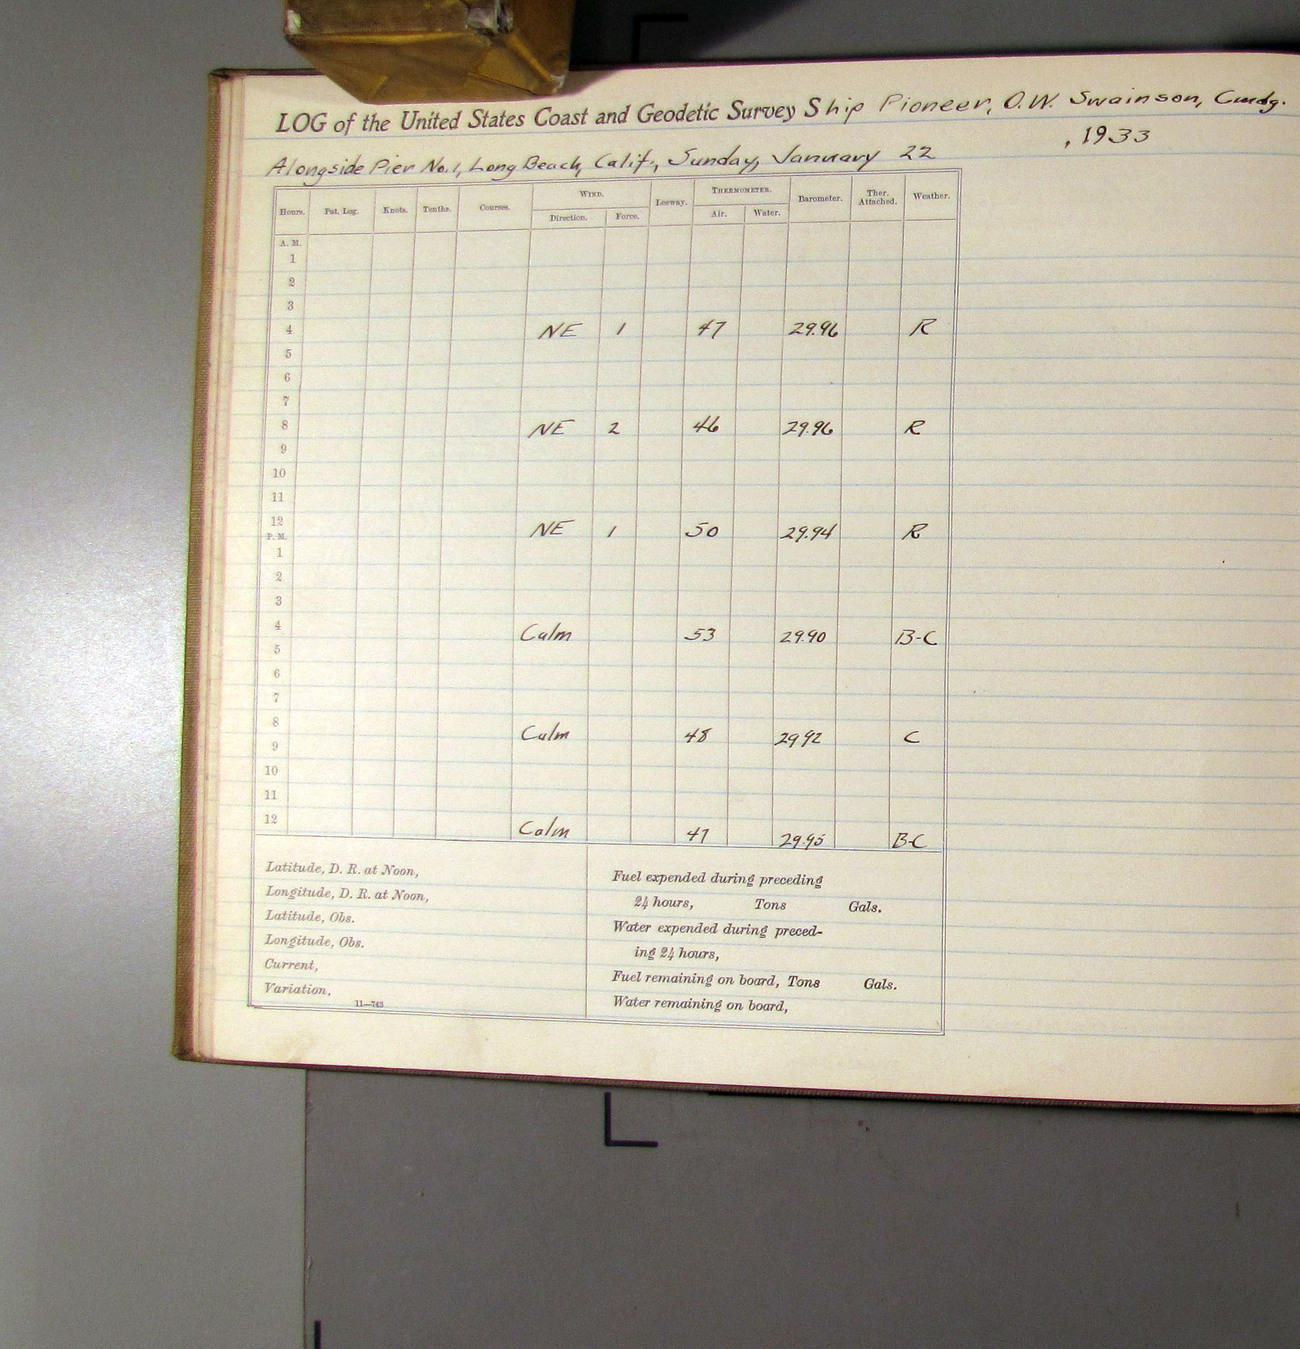 LOG of the United States Coast and Geodetic Survey Ship Pioneer, O.W. Swainson, Cmdg.
Alongside Pier No.1, Long Beach, Calif., Sunday, January 22, 1933
Hours. Pat. Log. Knots. Tenths. Courses. WIND. Leeway. THERMOMETER. Barometer. Ther. Attached. Weather.
Direction. Force. Air. Water.
A. M.
1
2
3
4 NE 1 47 29.96 R
5
6
7
8 NE 2 46 29.96 R
9
10
11
12 NE 1 50 29.94 R
P. M.
1
2
3
4 Calm 53 29.90 B-C
5
6
7
8 Calm 48 29.92 C
9
10
11
12 Calm 47 29.95 B-C
Latitude, D. R. at Noon,
Longitude, D. R. at Noon,
Latitude, Obs.
Longitude, Obs.
Current,
Variation,
11—743
Fuel expended during preceding
24 hours, Tons Gals.
Water expended during preced-
ing 24 hours,
Fuel remaining on board, Tons Gals.
Water remaining on board,